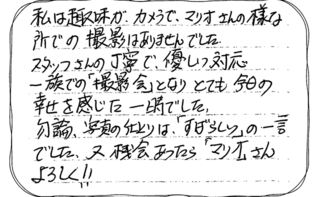 私は趣味が、カメラで、マリオさんの様な
所での撮影はありませんでした。
スタッフさんの丁寧で、優しい対応
一族での「撮影会」となりとても今日の
幸せを感じた一時でした。
勿論、写真の仕上りは、「すばらしい」の一言
でした、又機会あったら「マリオ」さん
よろしく!!